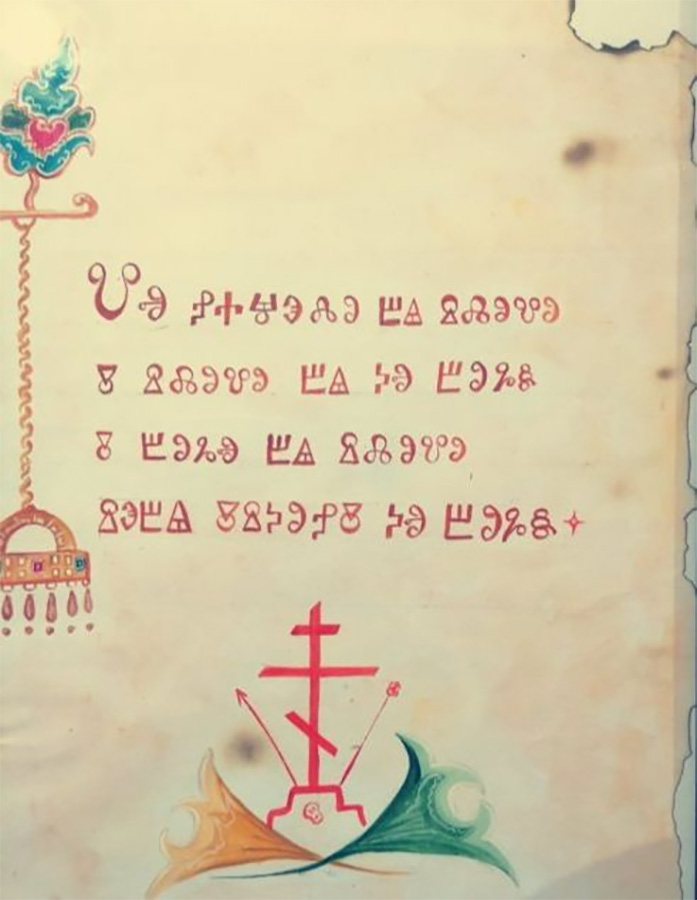 Ⰲⱏ ⱀⰰⱍⰵⰾⱁ ⰱⱑ ⱄⰾⱁⰲⱁ
ⰻ ⱄⰾⱁⰲⱁ ⰱⱑ ⰽⱏ ⰱⱁⰳⱆ
ⰻ ⰱⱁⰳⱏ ⰱⱑ ⱄⰾⱁⰲⱁ
ⱄⰵⰱⱑ ⰻⱄⰽⱁⱀⰻ ⰽⱏ ⰱⱁⰳⱆ